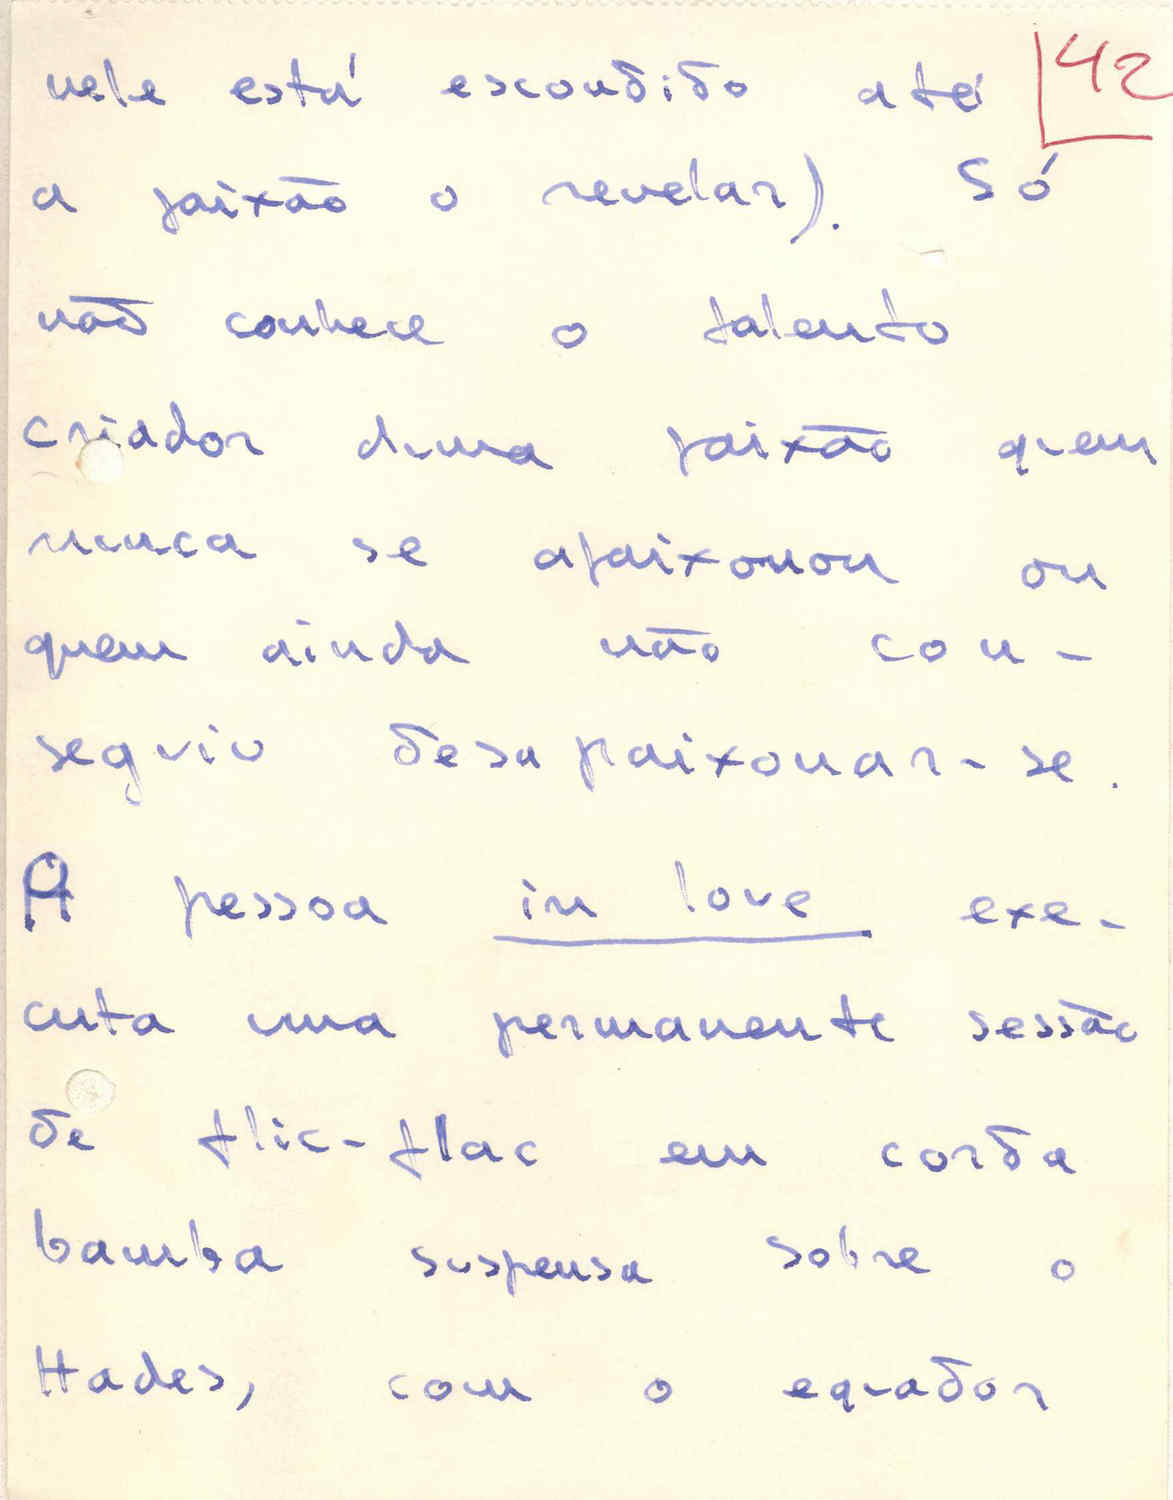 42
nele está escondido até
a paixão o revelar). Só
não conhece o talento
criador duma paixão quem
nunca se apaixonou ou
quem ainda não con-
seguiu desapaixonar-se.
A pessoa in love exe-
cuta uma permanente sessão
de flic-flac em corda
bamba suspensa sobre o
Hades, com o equador